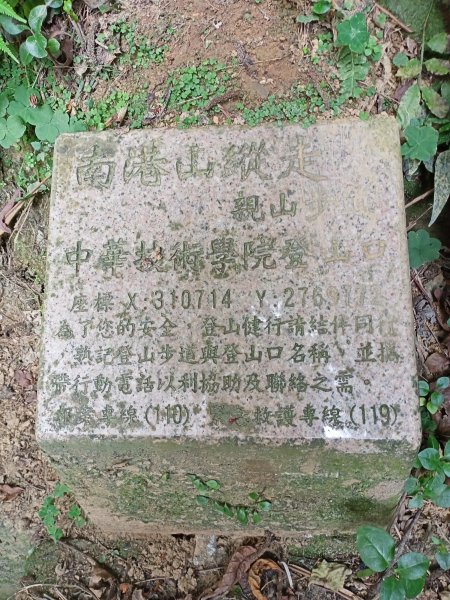 南港山縱走
親山步道
中華技術學院登山口
座標 X:310714 Y:276
為了您的安全，登山健行請結伴同行
，熟記登山步道與登山口名稱，並攜
帶行動電話以利協助及聯絡之需。
報案專線(110) 緊急救護專線(119)